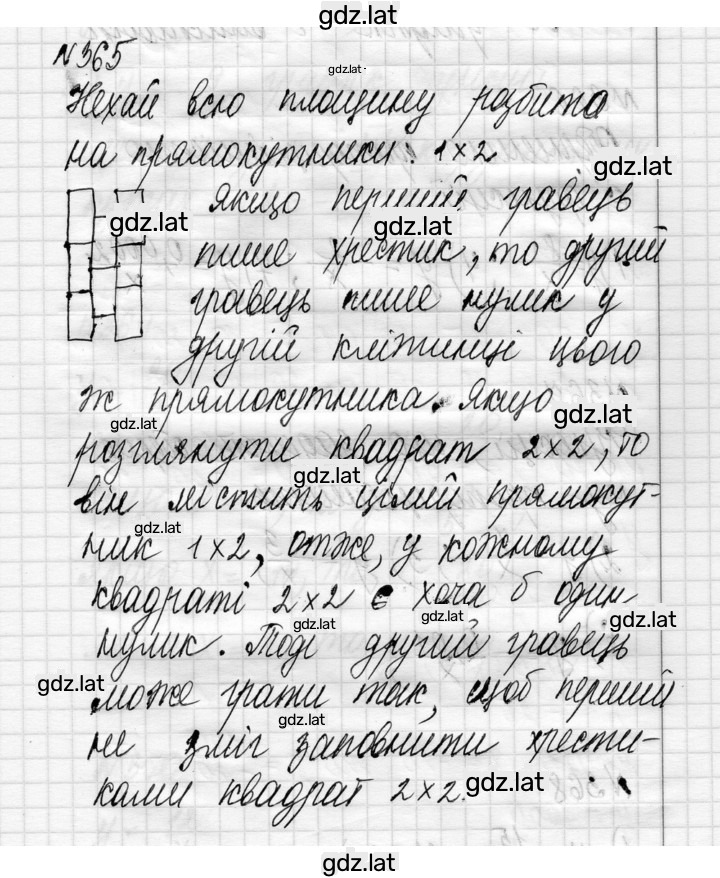 gdz.lat
№365
gdz.lat
Нехай всю площину розбито
на прямокутники: 1×2
gdz.lat
якщо перший гравець
gdz.lat gdz.lat
пише хрестик, то другий
gdz.lat
гравець пише нулик у
другій клітинці цього
ж прямокутника. Якщо
gdz.lat gdz.lat
розглянути квадрат 2×2, то
gdz.lat
він містить цілий прямокут-
gdz.lat
ник 1×2, отже, у кожному
gdz.lat
квадраті 2×2 є хоча б один
gdz.lat gdz.lat
нулик. Тоді другий гравець
gdz.lat
може грати так, щоб перший
gdz.lat
не зміг заповнити хрести-
ками квадрат 2×2.
gdz.lat
gdz.lat